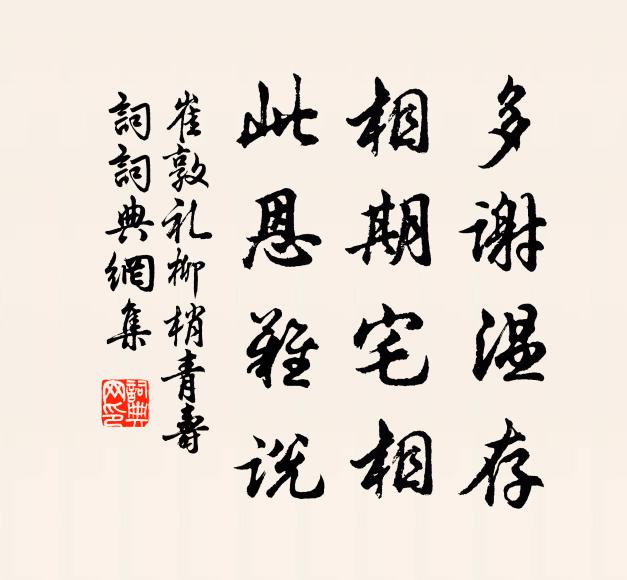 多谢温存
相期宅相
此恩难说
崔敦礼柳梢青寿
词词典網集
詞典网印